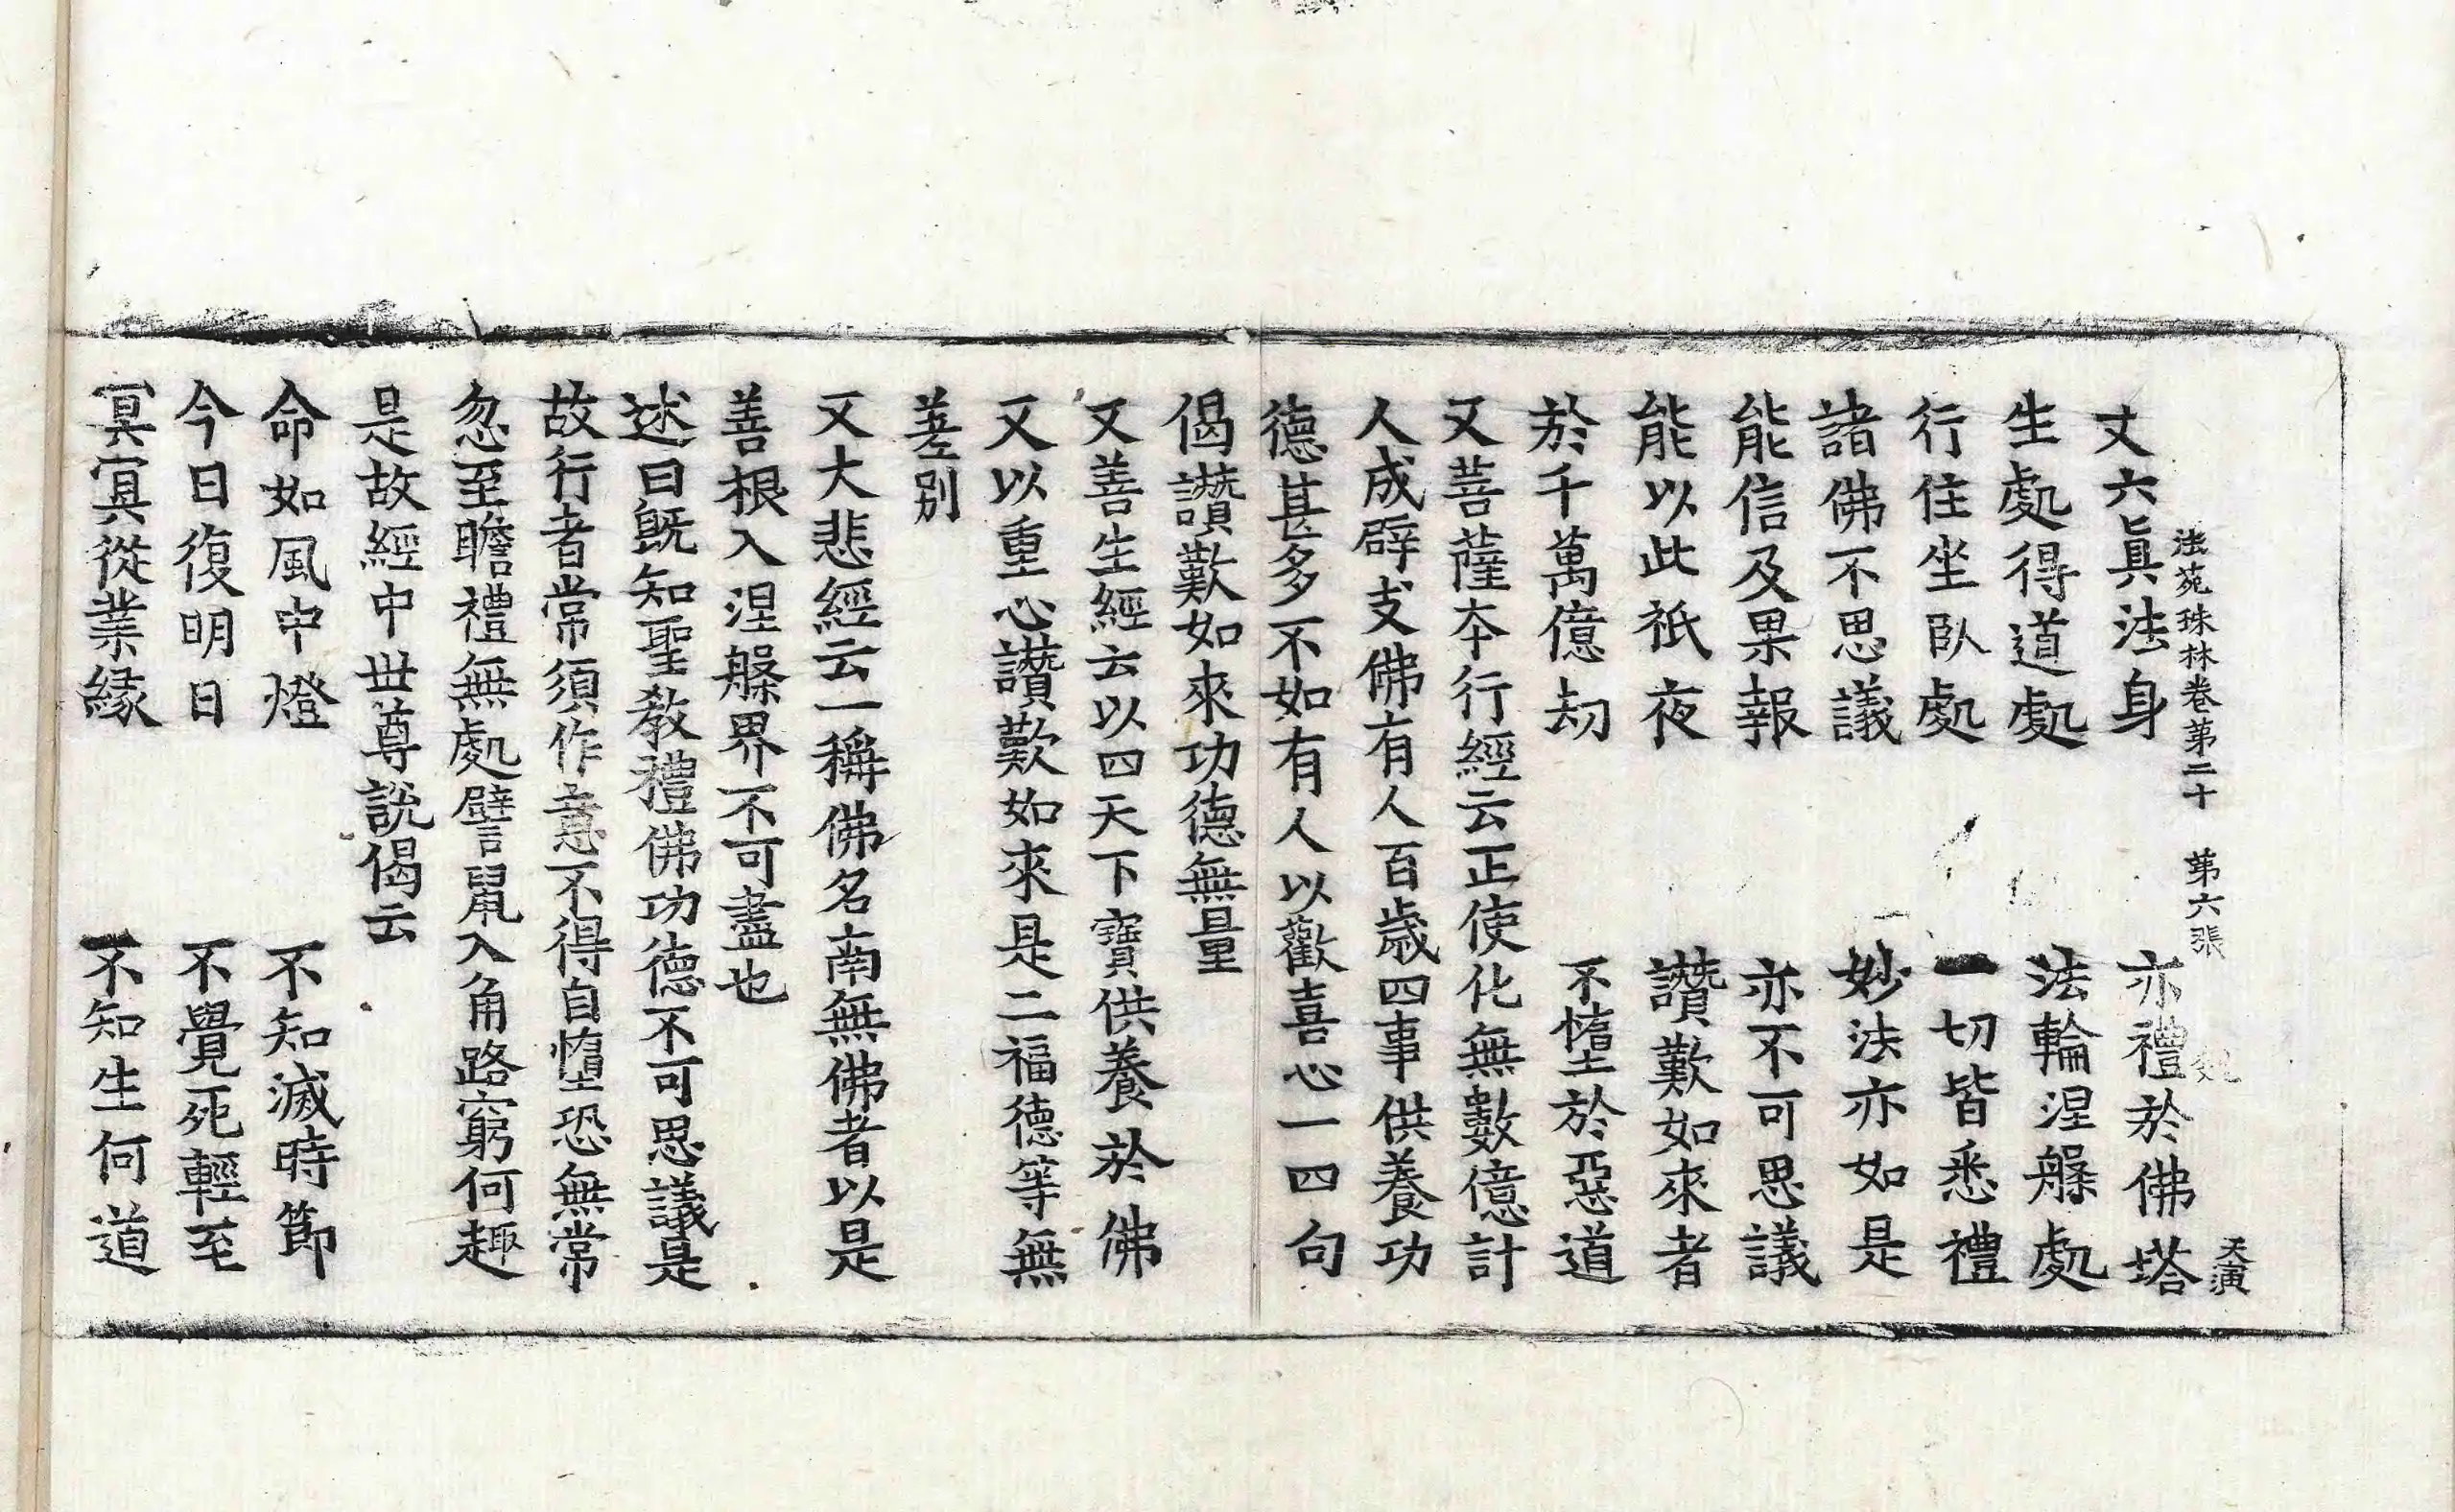 法苑珠林卷第二十 第六張 天演
丈六眞法身 亦禮於佛塔
生處得道處 法輪涅槃處
行住坐臥處 一切皆悉禮
諸佛不思議 妙法亦如是
能信及果報 亦不可思議
能以此祇夜 讚歎如來者
於千萬億劫 不墮於惡道
又菩薩本行經云正使化無數億計
人成辟支佛有人百歲四事供養功
德甚多不如有人以歡喜心一四句
偈讚歎如來功德無量
又善生經云以四天下寶供養於佛
又以重心讚歎如來是二福德等無
差別
又大悲經云一稱佛名南無佛者以是
善根入涅槃界不可盡也
述曰旣知聖教禮佛功德不可思議是
故行者常須作意不得自憜恐無常
忽至瞻禮無處譬鼠入角路窮何趣
是故經中世尊說偈云
命如風中燈 不知滅時節
今日復明日 不覺死輕至
冥冥從業緣 不知生何道